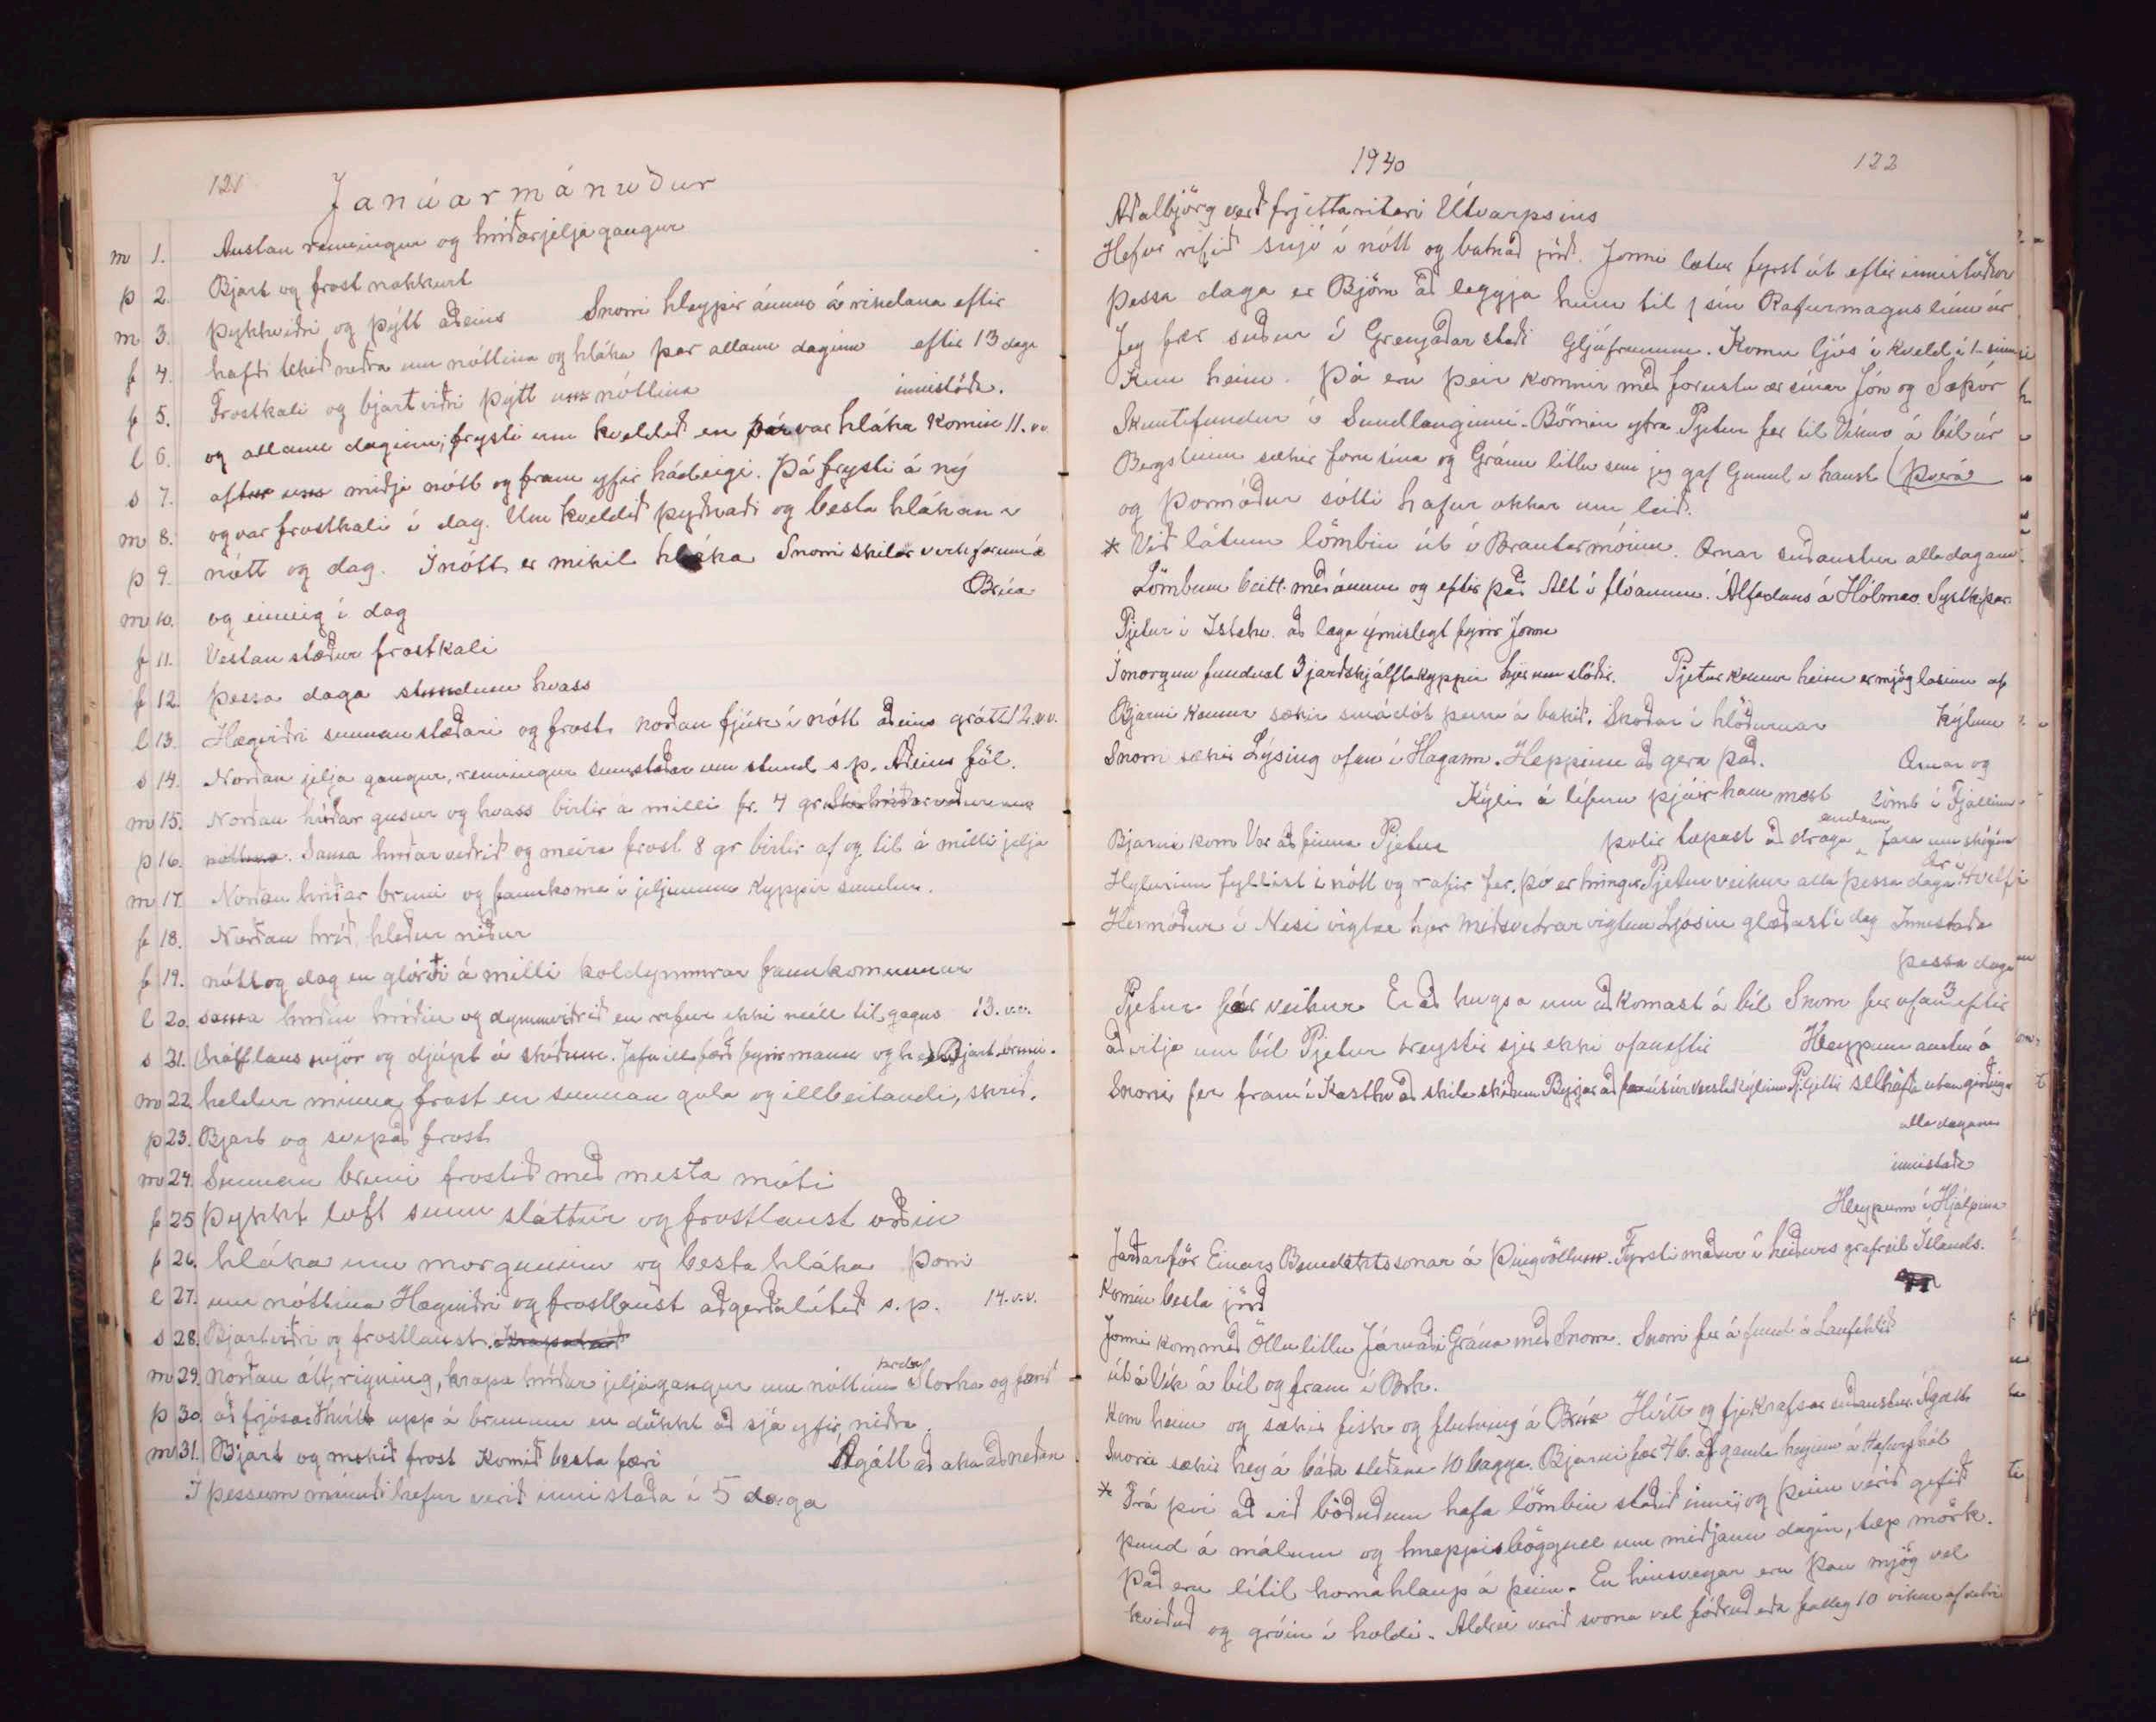 121
Janúarmánuður
m 1. Austan renningur og hríðarjeljagangur
þ 2. Bjart og frost nokkurt
m 3. Þykkviðri og þýtt aðeins Snorri hleypir ánum á rindana eftir
f 4. hafði tekið neðra um nóttina og hláka þar allann daginn eftir 13 daga
f 5. Frostkali og bjartviðri þýtt um nóttina innistöðu.
l 6. og allann daginn, frysti um kveldið en þá var hláka komin 11. v.v.
s 7. aftur um miðja nótt og fram yfir hádeigi. Þá frysti á ný
m 8. og var frostkali í dag. Um kveldið þyðnaði og besta hláka í
þ 9. nótt og dag. Í nótt er mikil hláka Snorri skilar verkfærum á
Brúa
m 10. og einnig í dag
f 11. Vestan stæður frostkali
f 12. þessa daga stundum hvass
l 13. Hægviðri sunnanstæðari og frost norðan fjúk í nótt aðeins grátt 12. v.v.
s 14. Norðan jelja gangur, renningur sumstaðar um stund s.p. Aðeins föl.
m 15. Norðan hríðar gusur og hvass birtir á milli fr. 4 gr.
þ 16. Sama hríðarveðrið og meira frost 8 gr birtir af og til á milli jelja
m 17. Norðan hríðar bruni og fannkoma í jeljunum kyppir sundur.
f 18. Norðan hríð, hleður niður
f 19. nótt og dag en glórði á milli koldymmrar fannkomunnar
l 20. sama hríðin og dymmviðrið en rifur ekki neitt til gagns 13. v.v.
s 21. Bjart, bruni.
m 22. heldur minna frost en sunnan gola og illbeitandi, skrið.
þ 23. Bjart og svipað frost
m 24. Sunnan bruni frostið með mesta móti
f 25 Þykkt loft sunn sláttur og frostlaust orðin
f 26. hláka um morguninn og besta hláka
l 27. um nóttina Hægviðri og frostlaust aðgerðalítið s.p. 14. v.v.
s 28. Bjartviðri og frostlaust.
m 29. norðan átt, rigning, krapa hríðar jeljagangur um nóttina
þ 30. að frjósa. Hvítt upp á brunum en dökkt að sjá yfir, niðra
m 31. Bjart og mekið frost Komið besta færi Ágátt að aka að neðan
Í þessum mánuði hefur verið innistaða í 5 daga
1940
122
Aðalbjörg verð frjettaritari Útvarpsins
Hefur rifið snjó í nótt og batnað jörð. Jonni lætur fyrst út eftir innistöðu
Þessa daga er Björn að leggja heim til sín Rafurmagnslínu úr
Jeg fer suður í Grenjaðarstaði Gljúfrunum. Komu ljós í kveld í 1. sinni
Kem heim. Þá eru þeir komnir með forustuær sínar Jón og Sæþór
Skautafundur í Sundlauginni. Börnin ytra Pjetur fer til Víkur á bíl úr
Bergsteinn sækir foru sína og Gránu litlu sem jeg gaf Gunnl í haust (Þverá
og Þormóður sótti hafur okkar um leið.
* Við látum lömbin út í Brautarmóinn. Ærnar suðaustur alla dagana
Lömbum beitt með ánum og eftir það Alt í flóanum. Álfadans á Hólmav.
Pjetur í Ystahv. að laga ýmislegt fyrir Jónu
Í morgun fundust 3 jarðskjálftakyppir hjer um slóðir. Pjetur kemur heim er mjög lasinn af
Bjarni kemur sækir smádót þeirra á bakið. Skoðar í hlöðurnar kýlum
Snorri sækir Lýsing ofan í Hagann. Heppinn að gera það. Ærnar og
Kýli á lífinu þjáir hann mest lömb í Fjallinu
Bjarni kom Var að finna Pjetur þolir tæpast að draga andann Fara um skóginn
Hylurinn fyllist í nótt og rafir fer. þó er hringir Pjetur veikur alla þessa daga
Hermóður í Nesi vigtar hjer miðsvetrar vigtun Ljósin glæðast í dag Innistaða
þessa daga
Pjetur fár veikur Er að hugsa um að komast á bíl Snorri fer ofan eftir
að vitja um bíl Pjetur treystir sjer ekki ofaneftir Hleypum austur á
Snorri fer fram í Kasthv að skila skíðum
alla dagana
innistaða
Hleypum í Hjálpina
Jarðarför Einars Benediktssonar á Þingvöllum. Fyrsti maður í heiðurs grafreit Íslands.
Komin besta jörð
Jonni kom með Öllu litlu Járnaði Grána með Snorra. Snorri fer á fund á Laufahlíð
út á Vík á bíl og fram í Brh.
Kom heim og sækir fisk og flutning á Brúa Hvítt og fje krafsar suðaustur. Ágætt
Snorri sækir hey á báða sleðana 10 bagga. Bjarni fær 4 b. af gamla heyinu á Hafurshól
* Frá því að við böðuðum hafa lömbin staðið inni, og þeim verið gefið
pund á málum og hneppisböggull um miðjann dagin, tæp mörk.
Það eru lítil hornahlaup á þeim. En hinsvegar eru þau mjög vel
kviðuð og gróin í holdi. Aldrei verið svona vel fóðruð eða falleg 10 vikur af vetri